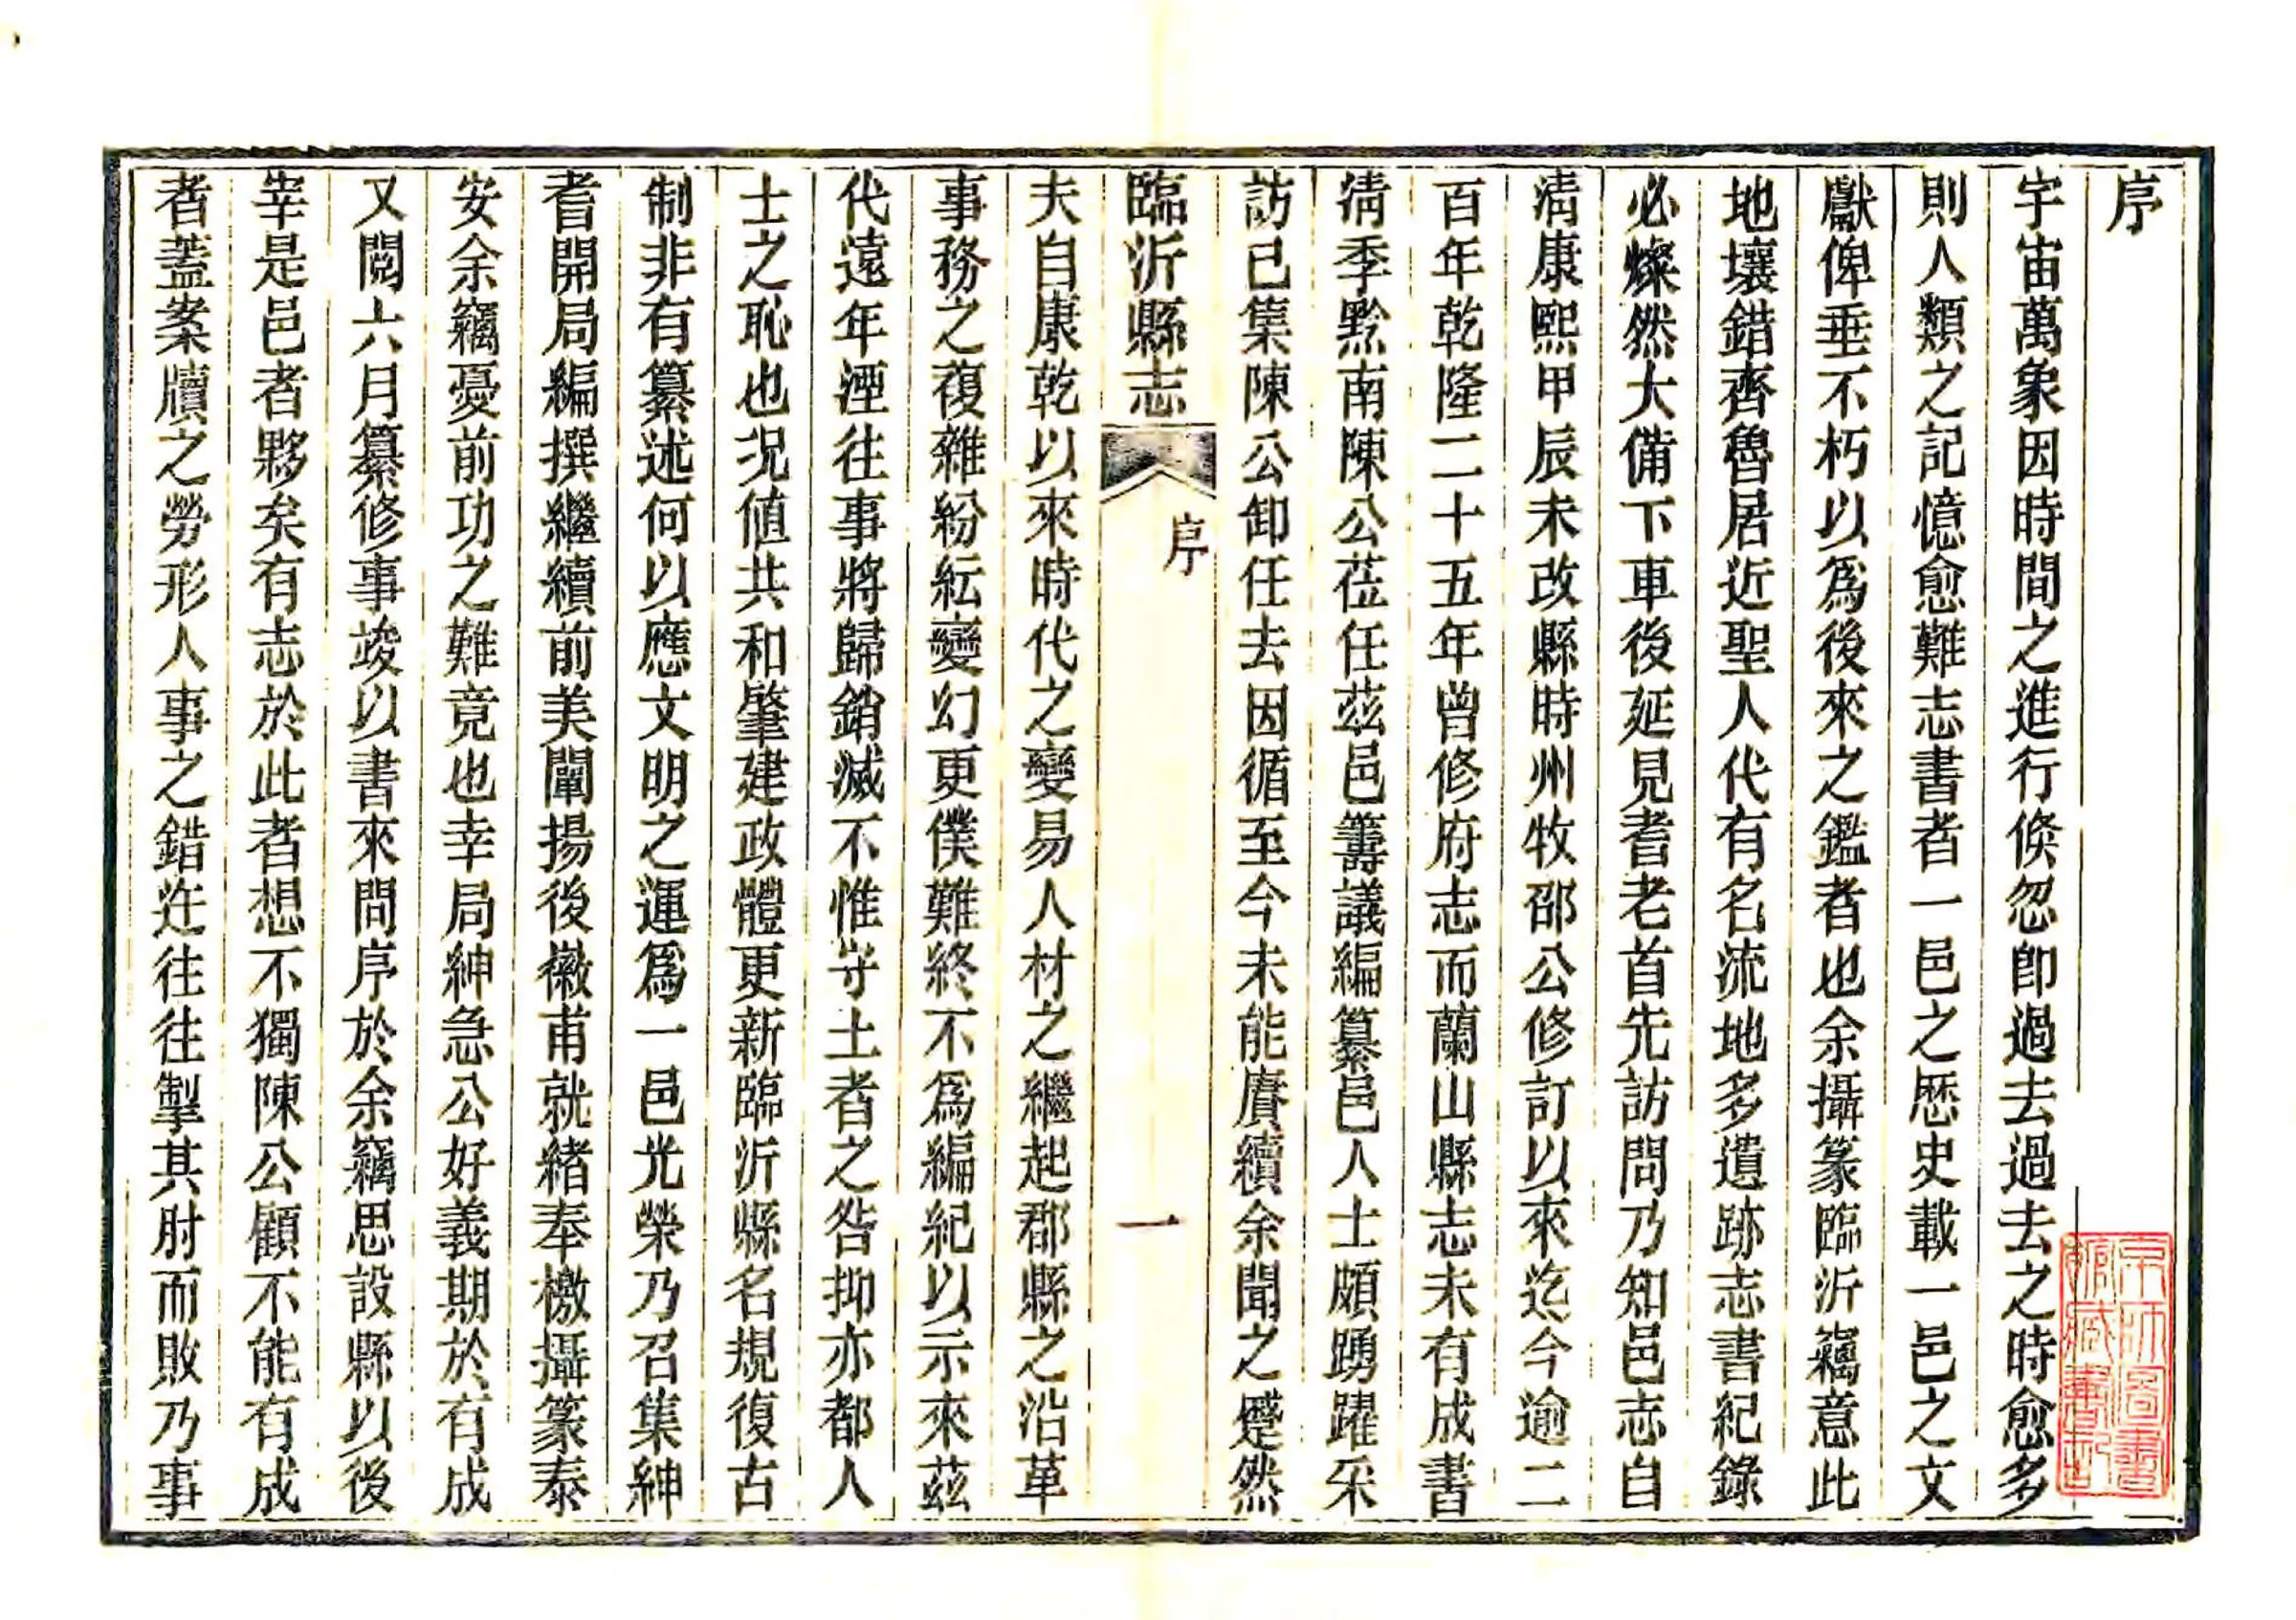 序
宇宙萬象因時間之進行倐忽卽過去過去之時愈多
則人類之記憶愈難志書者一邑之歷史載一邑之文
獻俾垂不朽以爲後來之鑑者也余攝篆臨沂竊意此
地壤錯齊魯居近聖人代有名流地多遺跡志書紀錄
必燦然大備下車後延見耆老首先訪問乃知邑志自
淸康熙甲辰未改縣時州牧邵公修訂以來迄今逾二
百年乾隆二十五年曾修府志而蘭山縣志未有成書
淸季黔南陳公莅任茲邑籌議編纂邑人士頗踴躍采
訪已集陳公卸任去因循至今未能賡續余聞之蹙然
臨沂縣志
序
一
夫自康乾以來時代之變易人材之繼起郡縣之沿革
事務之複雜紛紜變幻更僕難終不爲編紀以示來茲
代遠年湮往事將歸銷滅不惟守土者之咎抑亦都人
士之恥也况値共和肇建政體更新臨沂縣名規復古
制非有纂述何以應文明之運爲一邑光榮乃召集紳
耆開局編撰繼續前美闡揚後徽甫就緒奉檄攝篆泰
安余竊憂前功之難竟也幸局紳急公好義期於有成
又閱六月纂修事竣以書來問序於余竊思設縣以後
宰是邑者夥矣有志於此者想不獨陳公顧不能有成
者蓋案牘之勞形人事之錯迕往往掣其肘而敗乃事
京師圖書
館藏書記